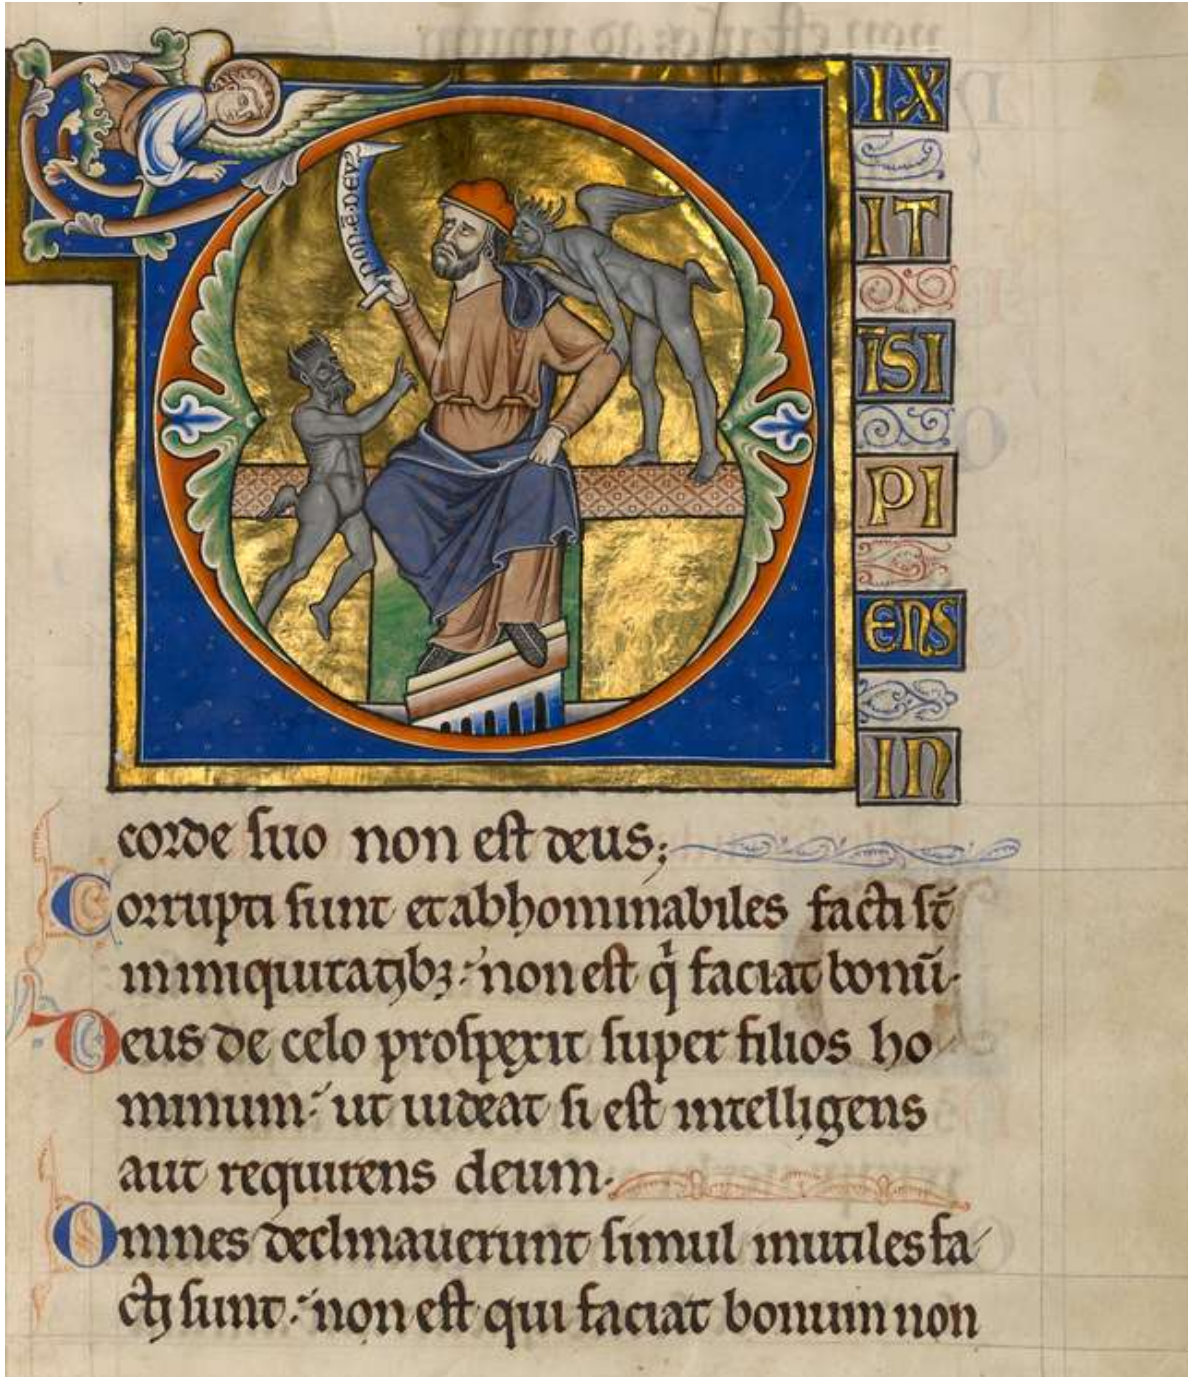 non·ē·deuſ
IX
IT
ĪSI
PI
ENS
IN
corde ſuo non eſt deus;
Corrupti ſunt et abhominabiles facti ſt̄
in iniquitatibꝫ: non eſt qͥ faciat bonū·
Deus de celo proſpexit ſuper filios ho
minum: ut uideat ſi eſt intelligens
aut requirens deum·
Omnes declinauerunt ſimul inutiles fa
cti ſunt: non eſt qui faciat bonum non